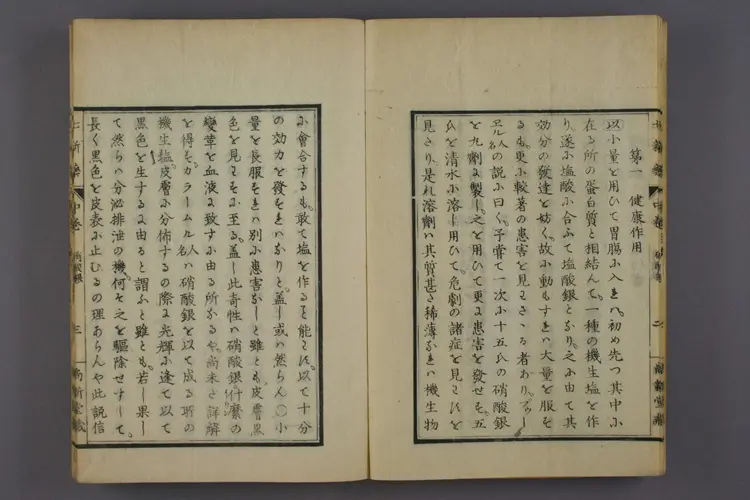 第一 健康作用
以小量を用ひて胃腸ふ入きハ。初め先つ其中ふ
在る所の蛋白質と相結んて。一種の機生塩を作
り。遂ふ塩酸ふ合ふて塩酸銀となり。之ふ由て其
効分の發達を妨く。故ふ動もすきハ大量を服を
るも更ふ較著の患害を見さゝる者あり。
人名の説ふ曰く。予嘗て一次ふ十五氏の硝酸銀
を丸劑ふ製し之を用ひて更ふ患害を發せも。五
氏を清水ふ溶し用ひて。危劇の諸症を見
見さり。是れ溶劑ハ其質甚さ稀薄なきハ機生物
ふ會合するも。敢て塩を作るを能ハ以て十分
の効力を發をきハなりと。蓋し或ハ然らん〇小
量を長服をきハ別ふ患害なしと雖とも。皮膚黒
色を見ふ至る。蓋し此奇性ハ硝酸銀什麼の
變革を血液ふ致すふ由る所なるや。尚未さ詳解
を得も。カラームル人名ハ硝酸銀を以て成る所の
機生塩皮膚ふ分佈するの際ふ。光輝ふ逢て以て
黒色を生するふ由ると謂ふと雖とも。若し果し
て然らハ分泌排泄の機。何そ之を驅除せすして。
長く黒色を皮表ふ止むるの理あらんや此説信
七新薬 中巻 硝酸銀 三